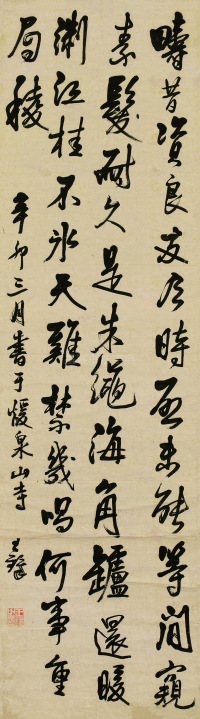 疇昔資良友時未能等閒窺
素髮耐久是朱繩海角鑪還暖
淛江桂不冰天雞禁幾唱何事重
稜
辛卯三月書于煖泉山寺
王鐸